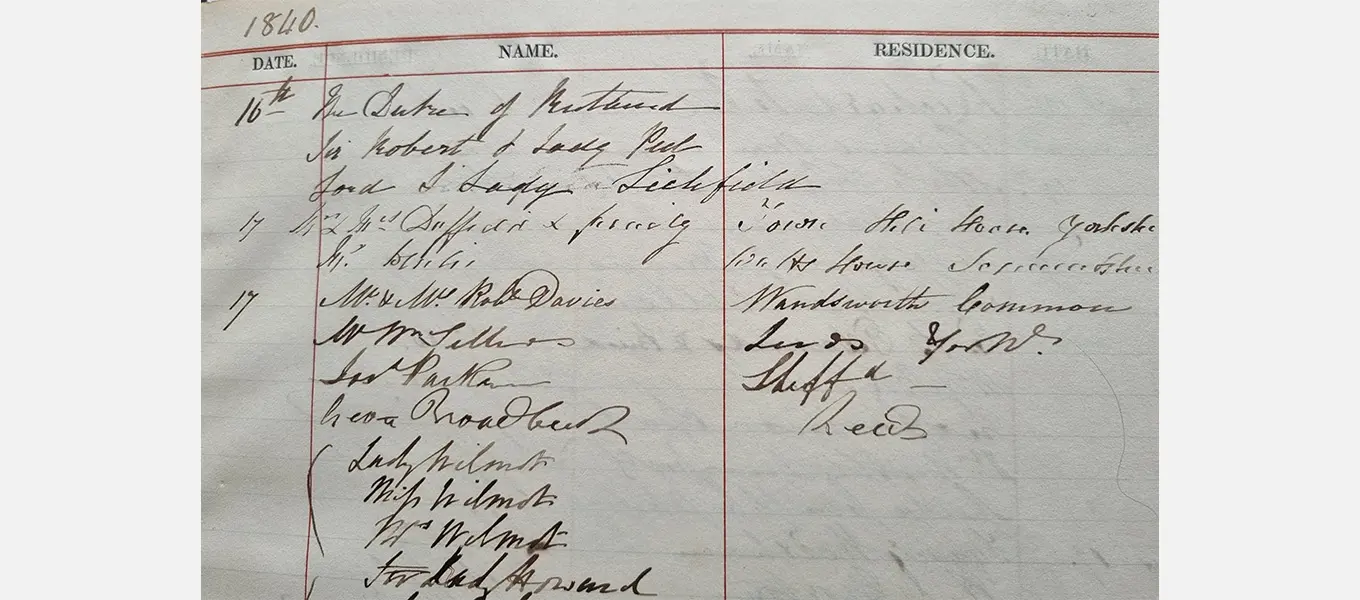 1840.
DATE. NAME. RESIDENCE.
16th The Duke of Rutland
Sir Robert & Lady Peel
Lord & Lady Lichfield
17 Mr & Mrs & family Town Hill House Yorkshi
Mr House
17 Mr & Mrs Robt Davies Wandsworth Common
Mr Wm Leeds York.
Josh Parkin Sheffd
Geo Broadbent Leeds
Lady Wilmot
Miss Wilmot
Wilmot
Lady Howard